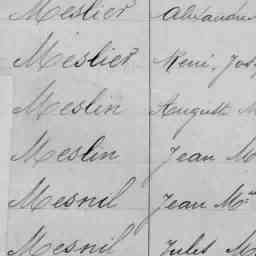 Meslier Alexandre
Meslier René, Jos
Meslin August M
Meslin Jean M
Mesnil Jean M
Mesnil Jules M